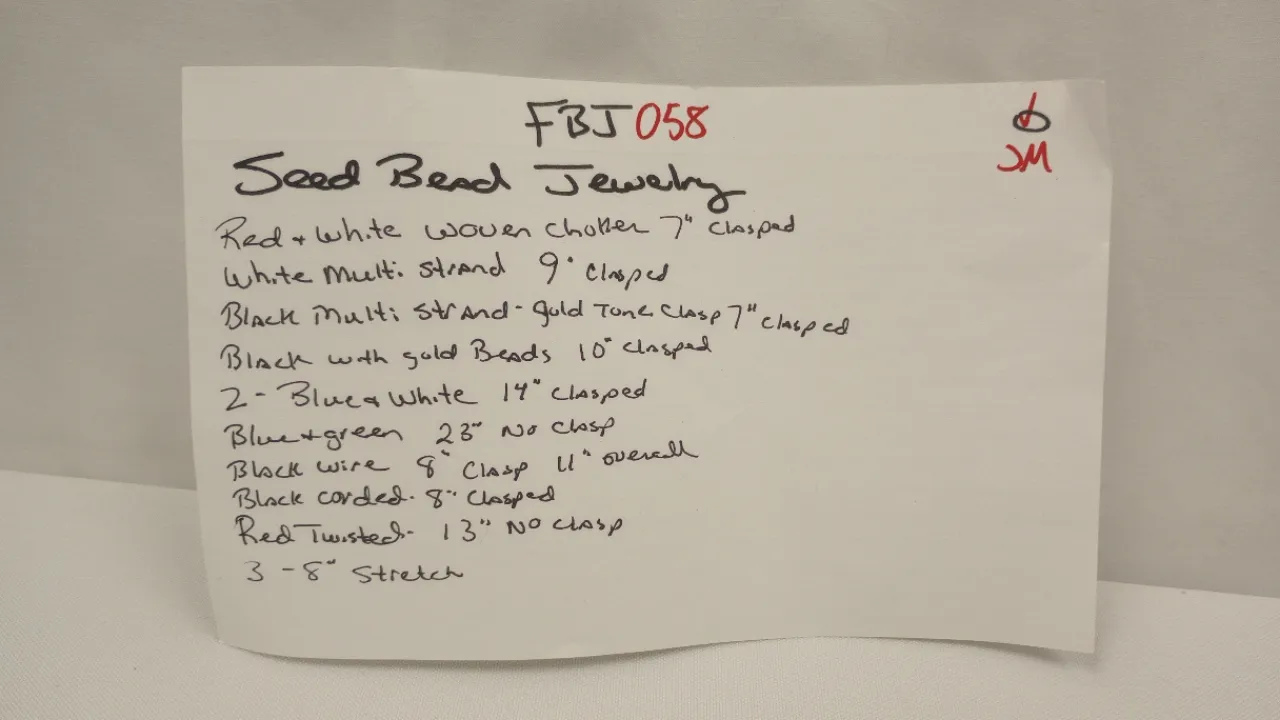 FBJ058
JM
Seed Bead Jewelry
Red + White woven choker 7" clasped
White Multi strand 9" clasped
Black Multi strand - gold Tone Clasp 7" clasped
Black with gold Beads 10" clasped
2 - Blue + White 14" clasped
Blue + green 23" No clasp
Black wire 8" Clasp 11" overall
Black corded - 8" clasped
Red Twisted - 13" No clasp
3 - 8" Stretch